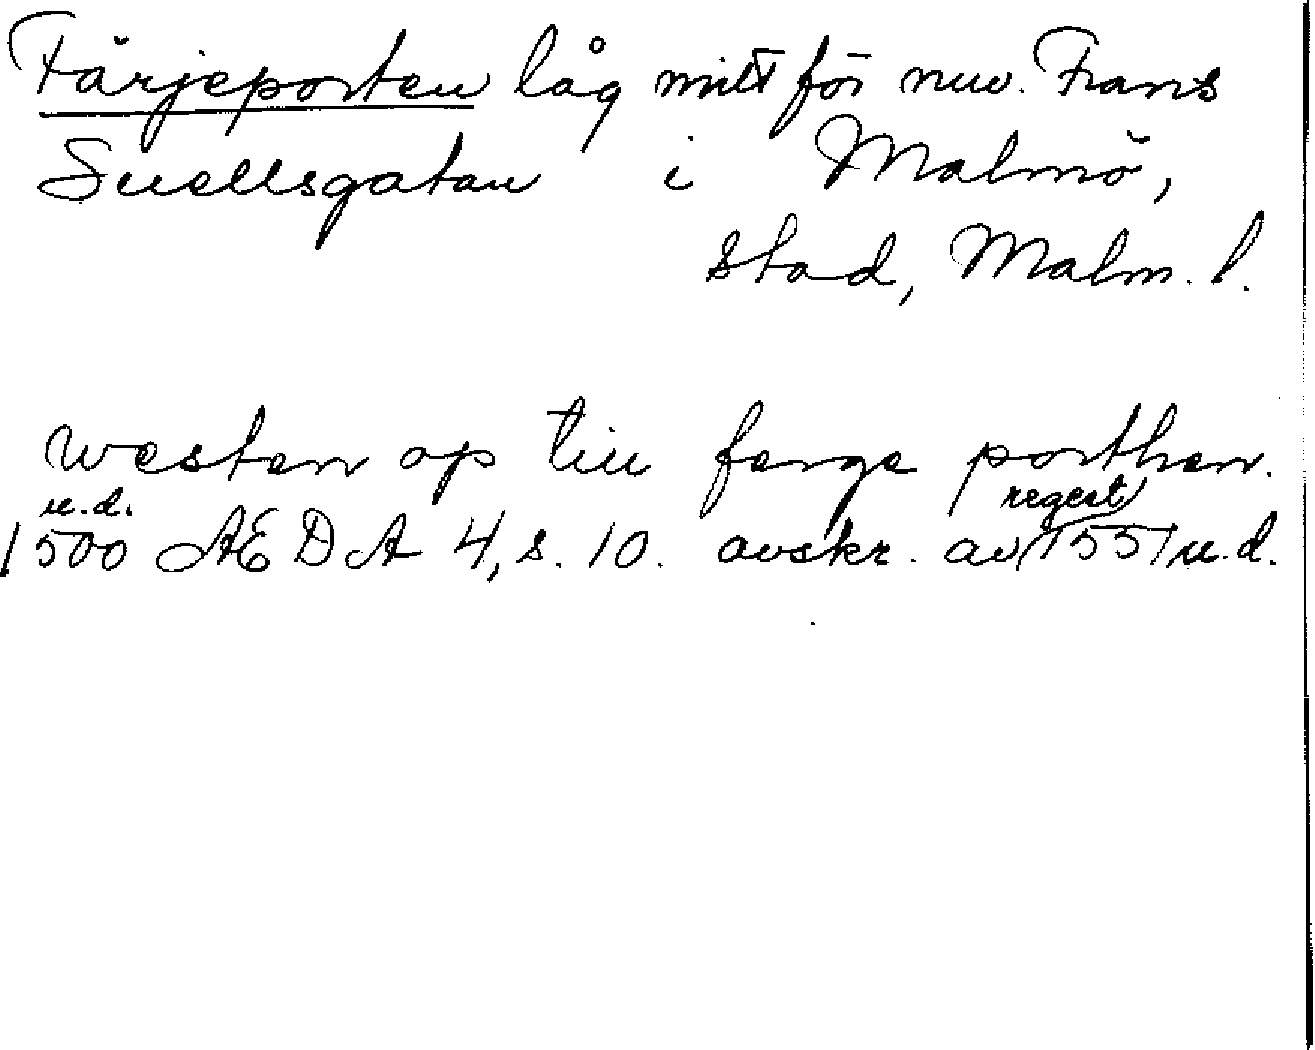 Färjeporten låg mitt för nuv. Frans
Suellsgatan i Malmö,
stad, Malm. l.
westen op till ferge porthen.
u.d.
regest
1500 AEDA 4, s. 10. avskr. av 1551 u.d.